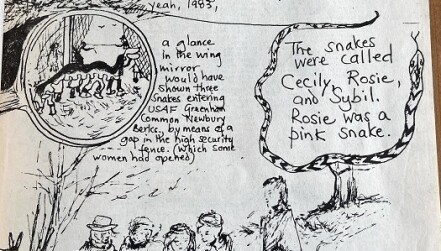 yeah, 1983,
a glance
in the wing
mirror
would have
shown three
snakes entering
USAF Greenham
Common Newbury
Berks., by means of a
gap in the high security
fence. (which some
women had opened)
The snakes
were called
Cecily, Rosie,
and Sybil.
Rosie was a
pink snake.